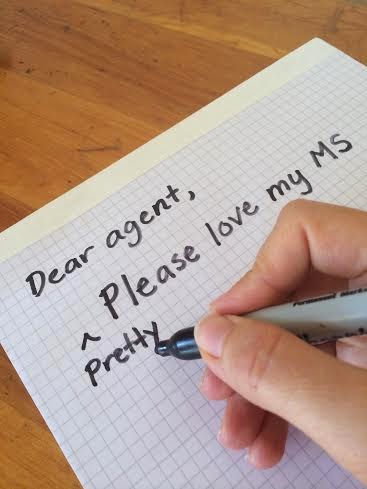 Dear agent,
^ Please love my MS
Pretty
Permanent Marker